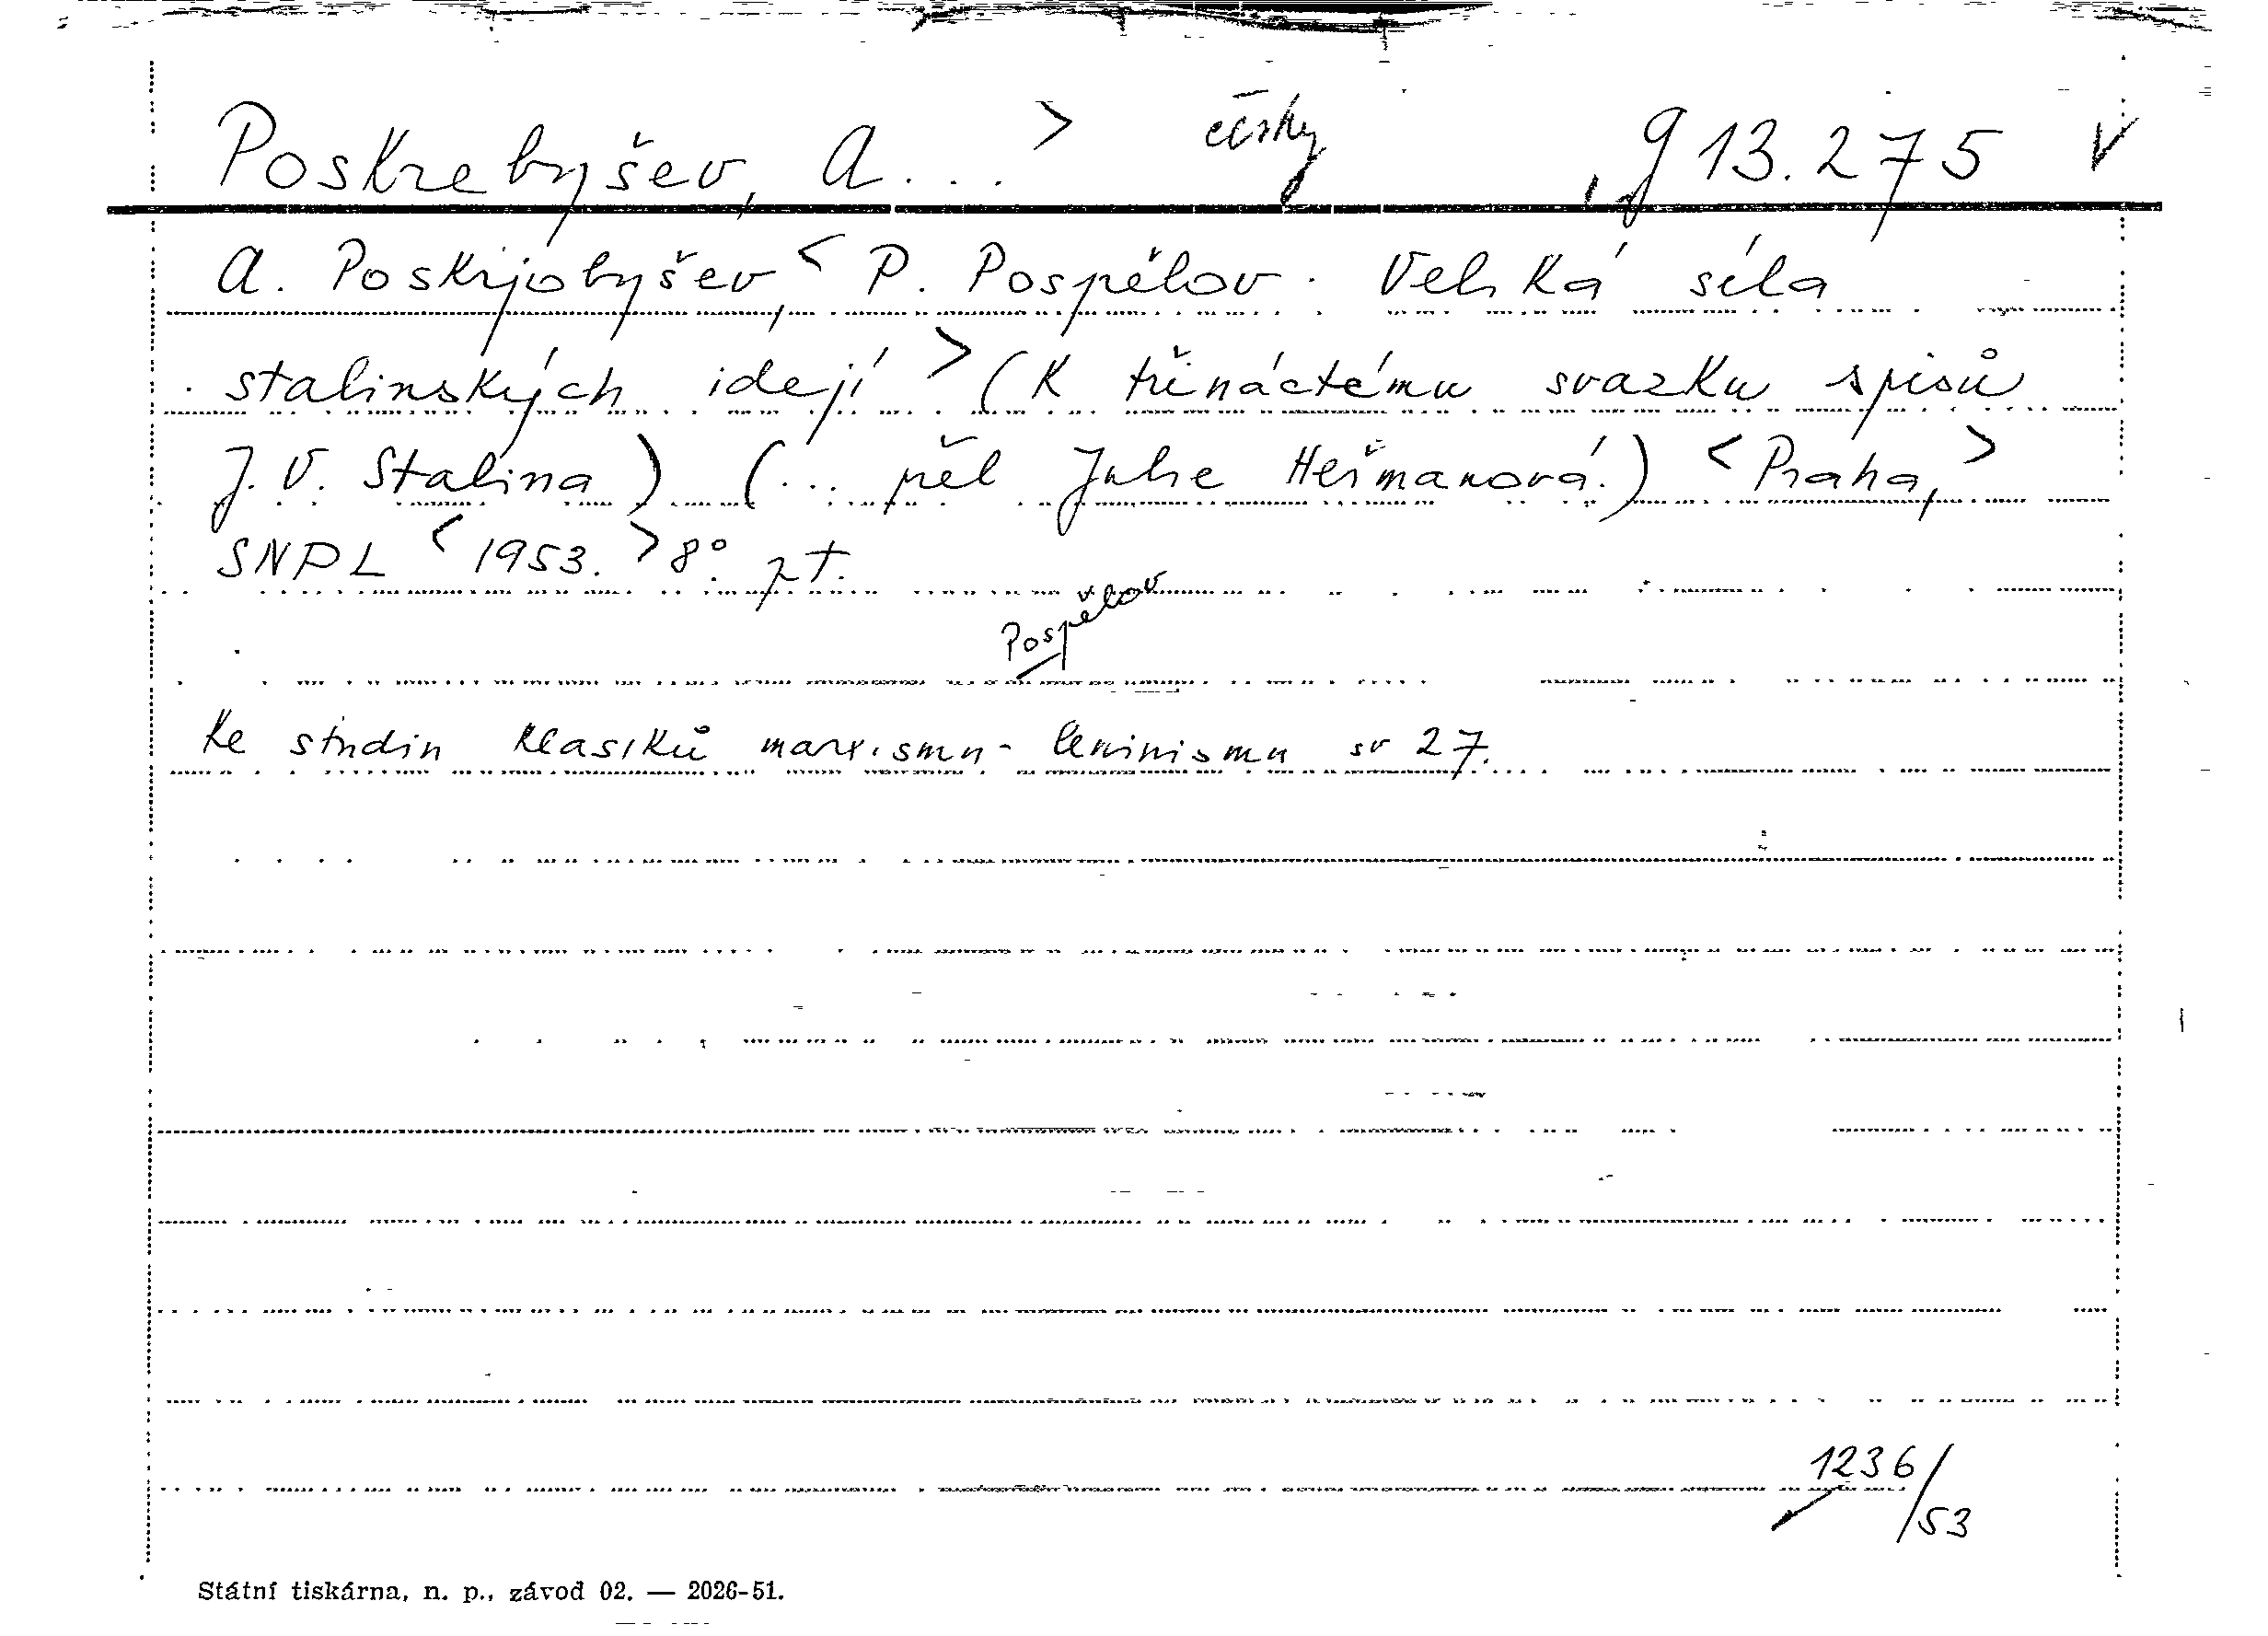 Poskrebyšev, A... > česky g 13.275 v
A. Poskrjobyšev, < P. Pospělov. Velká síla
stalinských idejí > (K třináctému svazku spisů
J. V. Stalina) (... přel Julie Heřmanová.) < Praha, >
SNPL < 1953. > 8°. pt.
Pospělov
Ke studiu klasiků marxismu-leninismu sv 27.
1236/53
Státní tiskárna, n. p., závod 02. — 2026-51.